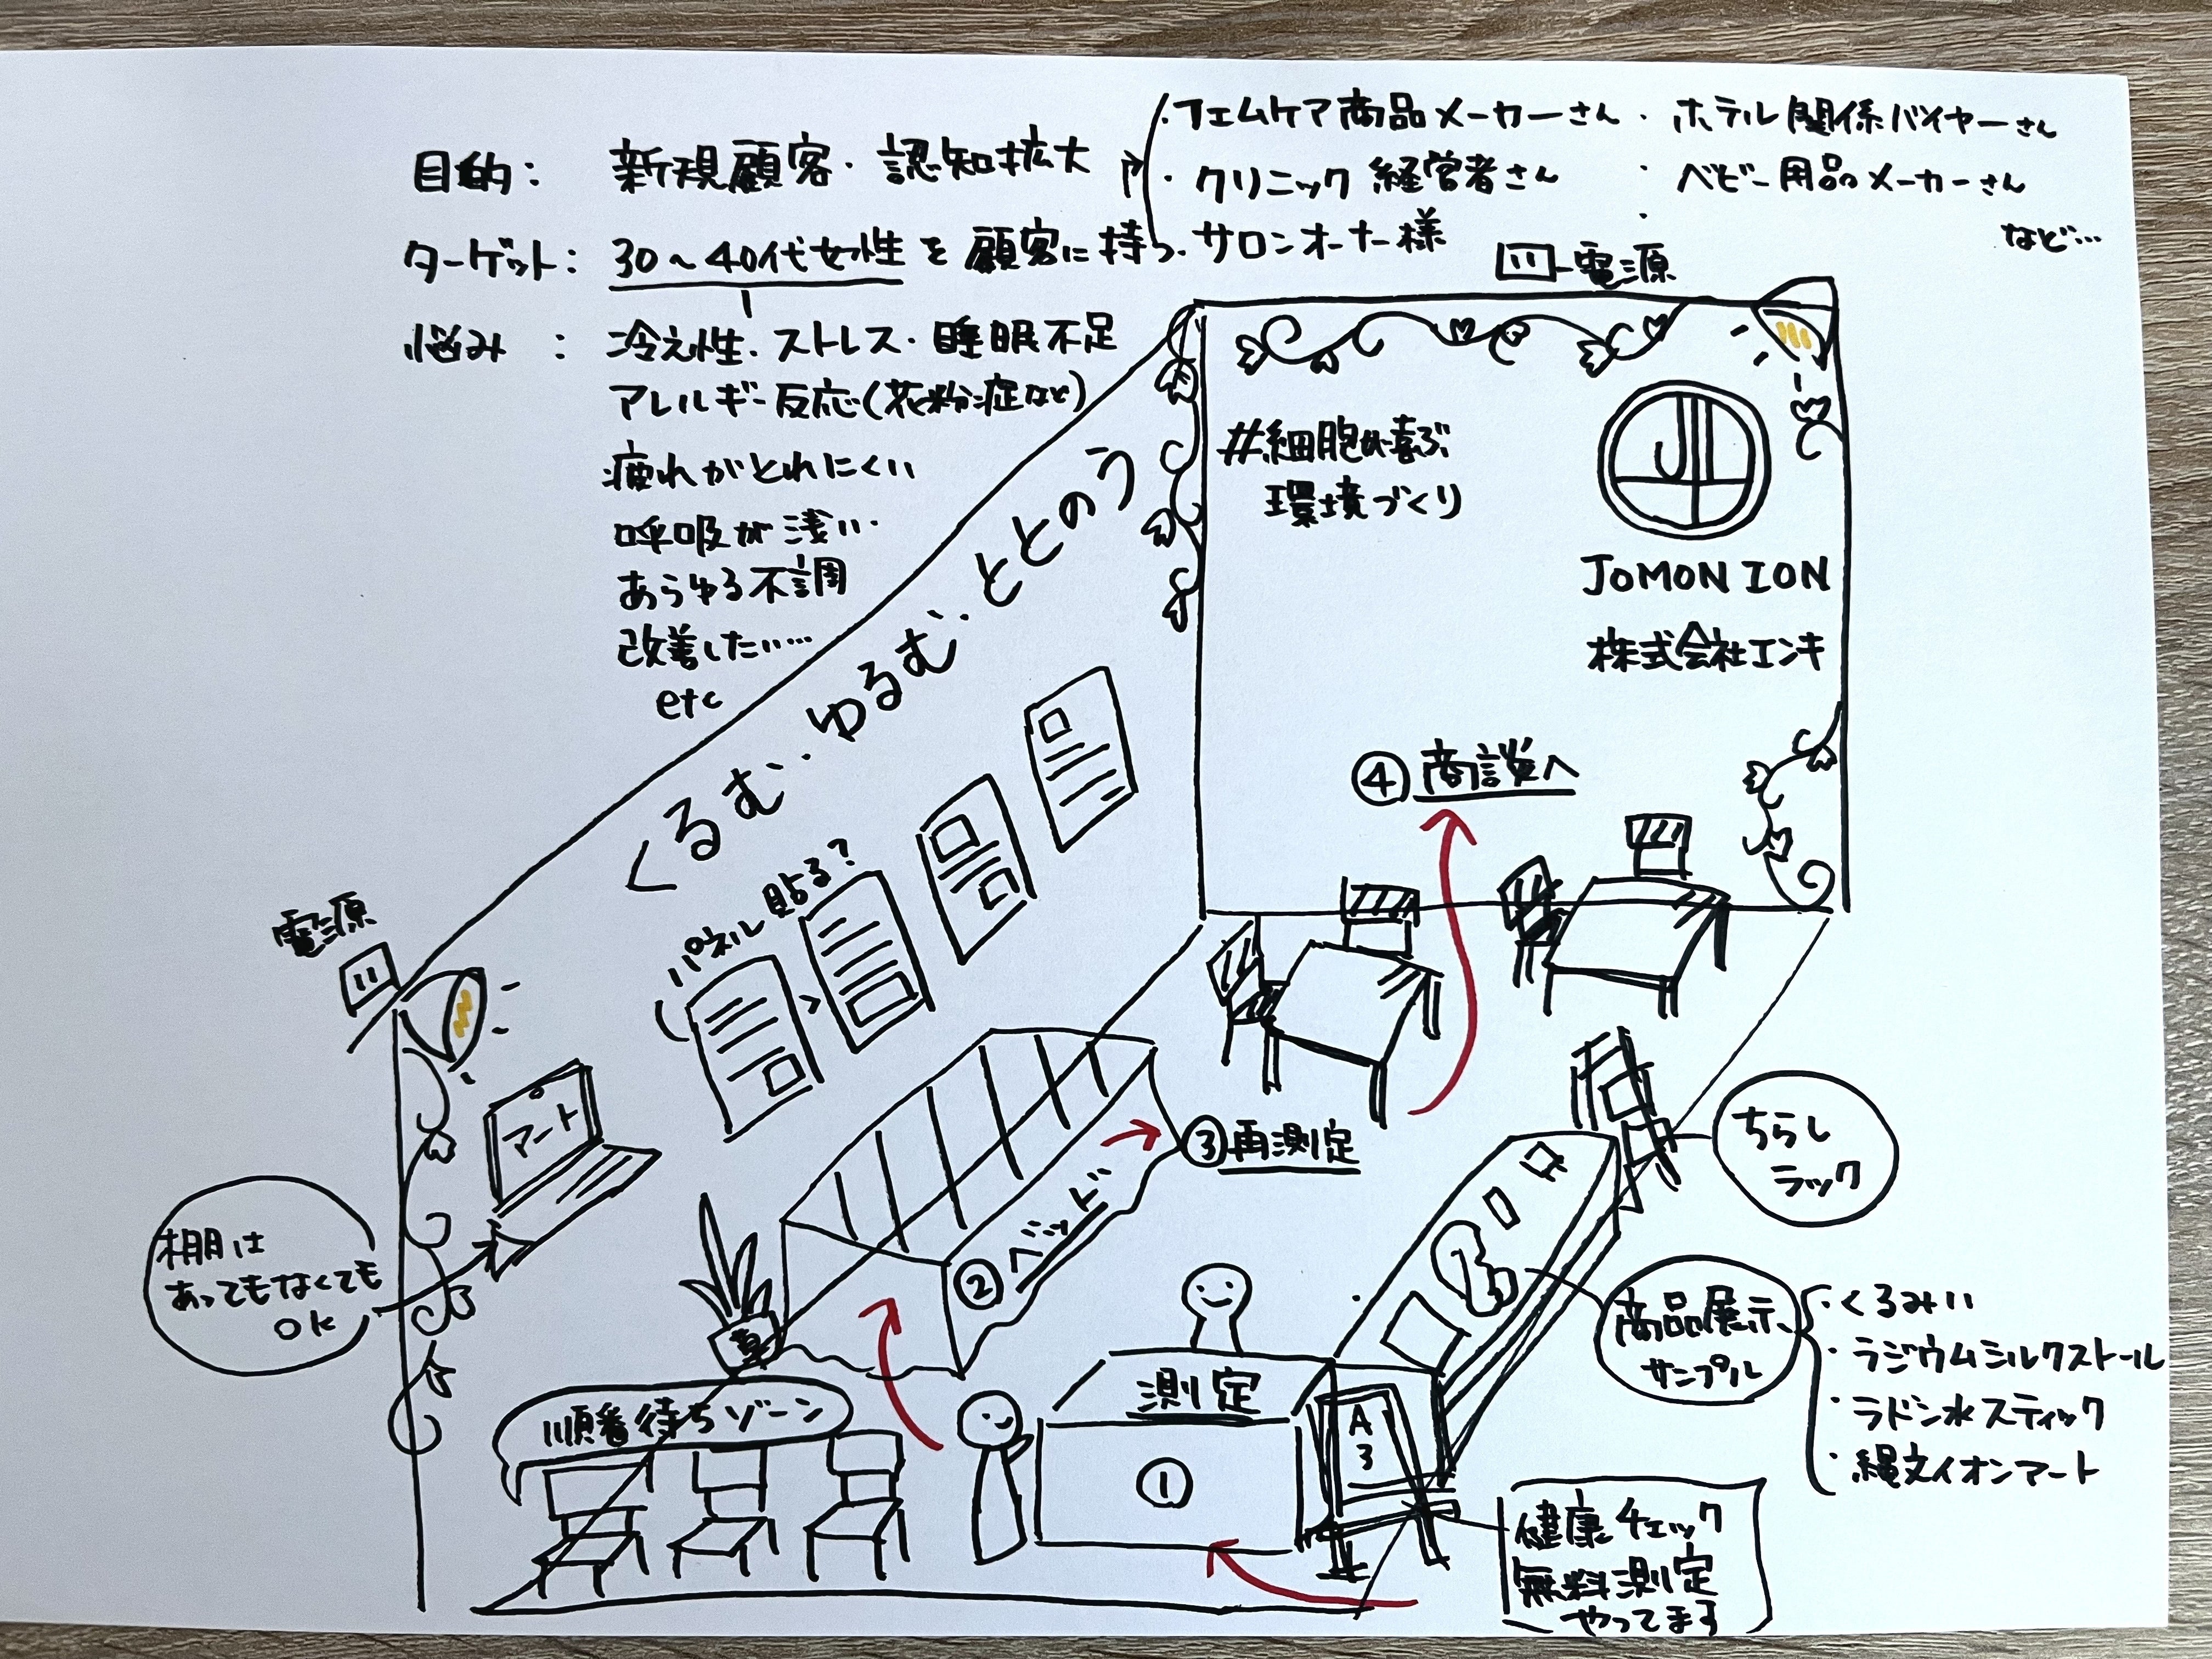 目的： 新規顧客・認知拡大
ターゲット： 30～40代女性を顧客に持つ
・フェムケア商品メーカーさん
・クリニック経営者さん
・サロンオーナー様
・ホテル関係バイヤーさん
・ベビー用品メーカーさん
・
など…
悩み： 冷え性・ストレス・睡眠不足
アレルギー反応(花粉症など)
疲れがとれにくい
呼吸が浅い・
あらゆる不調
改善したい…
etc
電源
#細胞が喜ぶ
環境づくり
JOMON ION
株式会社エンキ
くるむ・ゆるむ・ととのう
④商談へ
パネル貼る?
電源
マート
棚は
あってもなくても
OK
③再測定
②ベッド
ちらし
ラック
草
順番待ちゾーン
測定
①
A3
商品展示
サンプル
・くるみい
・ラジウムシルクストール
・ラドン水スティック
・縄文イオンマート
健康チェック
無料測定
やってます